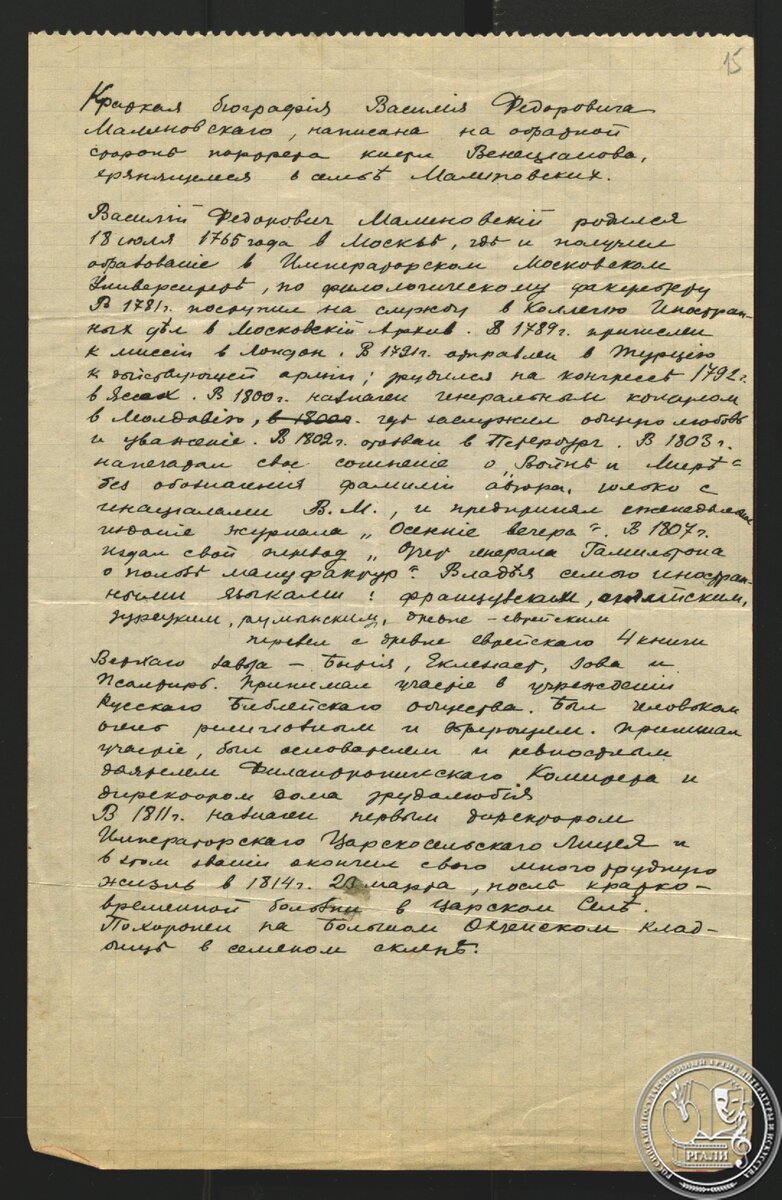 15
Краткая біографія Василія Федоровича
Малиновскаго, написана на обратной
сторонѣ портрета кисти Венеціанова,
хранящемся в семьѣ Малиновских.
Василій Федорович Малиновскій родился
18 июля 1765 года в Москвѣ, гдѣ и получил
образованіе в Императорском Московском
Университетѣ, по филологическому факультету
В 1781 г. поступил на службу в Коллегію Иностран-
ных дѣл в Московскій Архив. В 1789 г. причислен
к миссіи в Лондон. В 1791 г. отправлен в Турцію
к дѣйствующей арміи; трудился на конгрессѣ 1792 г.
в Яссах. В 1800 г. назначен генеральным консулом
в Молдавію, в 1800 г. гдѣ заслужил общую любовь
и уваженіе. В 1802 г. отозван в Петербург. В 1803 г.
напечатал свое сочиненіе о „Войнѣ и Мирѣ“
без обозначения фамиліи автора, только с
инициалами В. М., и предпринял еженедѣльное
изданіе журнала „Осенніе вечера“. В 1807 г.
издал свой перевод „Отчет генерала Гамильтона
о пользѣ мануфактур“. Владѣя семью иностран-
ными языками: французским, английским,
турецким, румынским, древне-еврейским
перевел с древне еврейскаго 4 книги
Ветхаго завѣта – Бытія, Еклезиаст, Иова и
Псалтирь. Принимал участіе в учрежденіи
Русскаго Библейскаго общества. Был человѣком
очень религіозным и вѣрующем. Принимал
участіе, был основателем и ревностным
дѣятелем Филантропическаго Комитета и
директором дома трудолюбія
В 1811 г. назначен первым директором
Императорскаго Царскосельскаго Лицея и
в этом званіи окончил свою многотрудную
жизнь в 1814 г. 23 марта, послѣ кратко-
временной болѣзни в Царском Селѣ.
Похоронен на Большом Охтенском клад-
бищѣ в семейном склепѣ.
РОССИЙСКИЙ ГОСУДАРСТВЕННЫЙ АРХИВ ЛИТЕРАТУРЫ И ИСКУССТВА
РГАЛИ